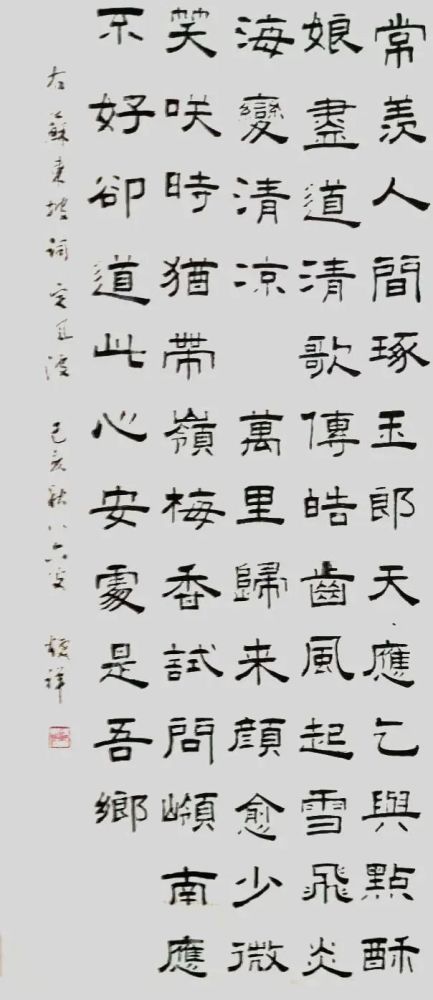 常羨人間琢玉郎天應乞與點酥
娘盡道清歌傳皓齒風起雪飛炎
海變清涼萬里歸来顔愈少微
笑咲時猶帶嶺梅香試問嶺南應
不好卻道此心安處是吾鄉
右蘇東坡詞定風波 己亥秋八六叟 祥